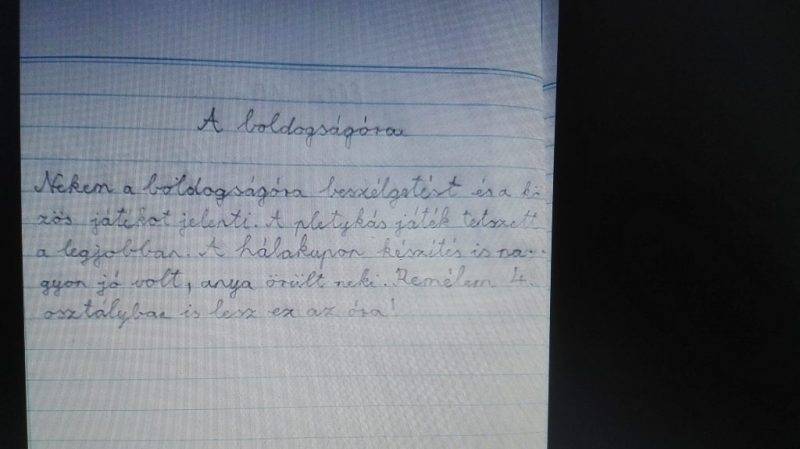 A boldogságóra
Nekem a boldogságóra beszélgetést és a kö
zös játékot jelenti. A pletykás játék tetszett
a legjobban. A hálakupon készítés is na-
gyon jó volt, anya örült neki. Remélem 4.
osztályban is lesz ez az óra!